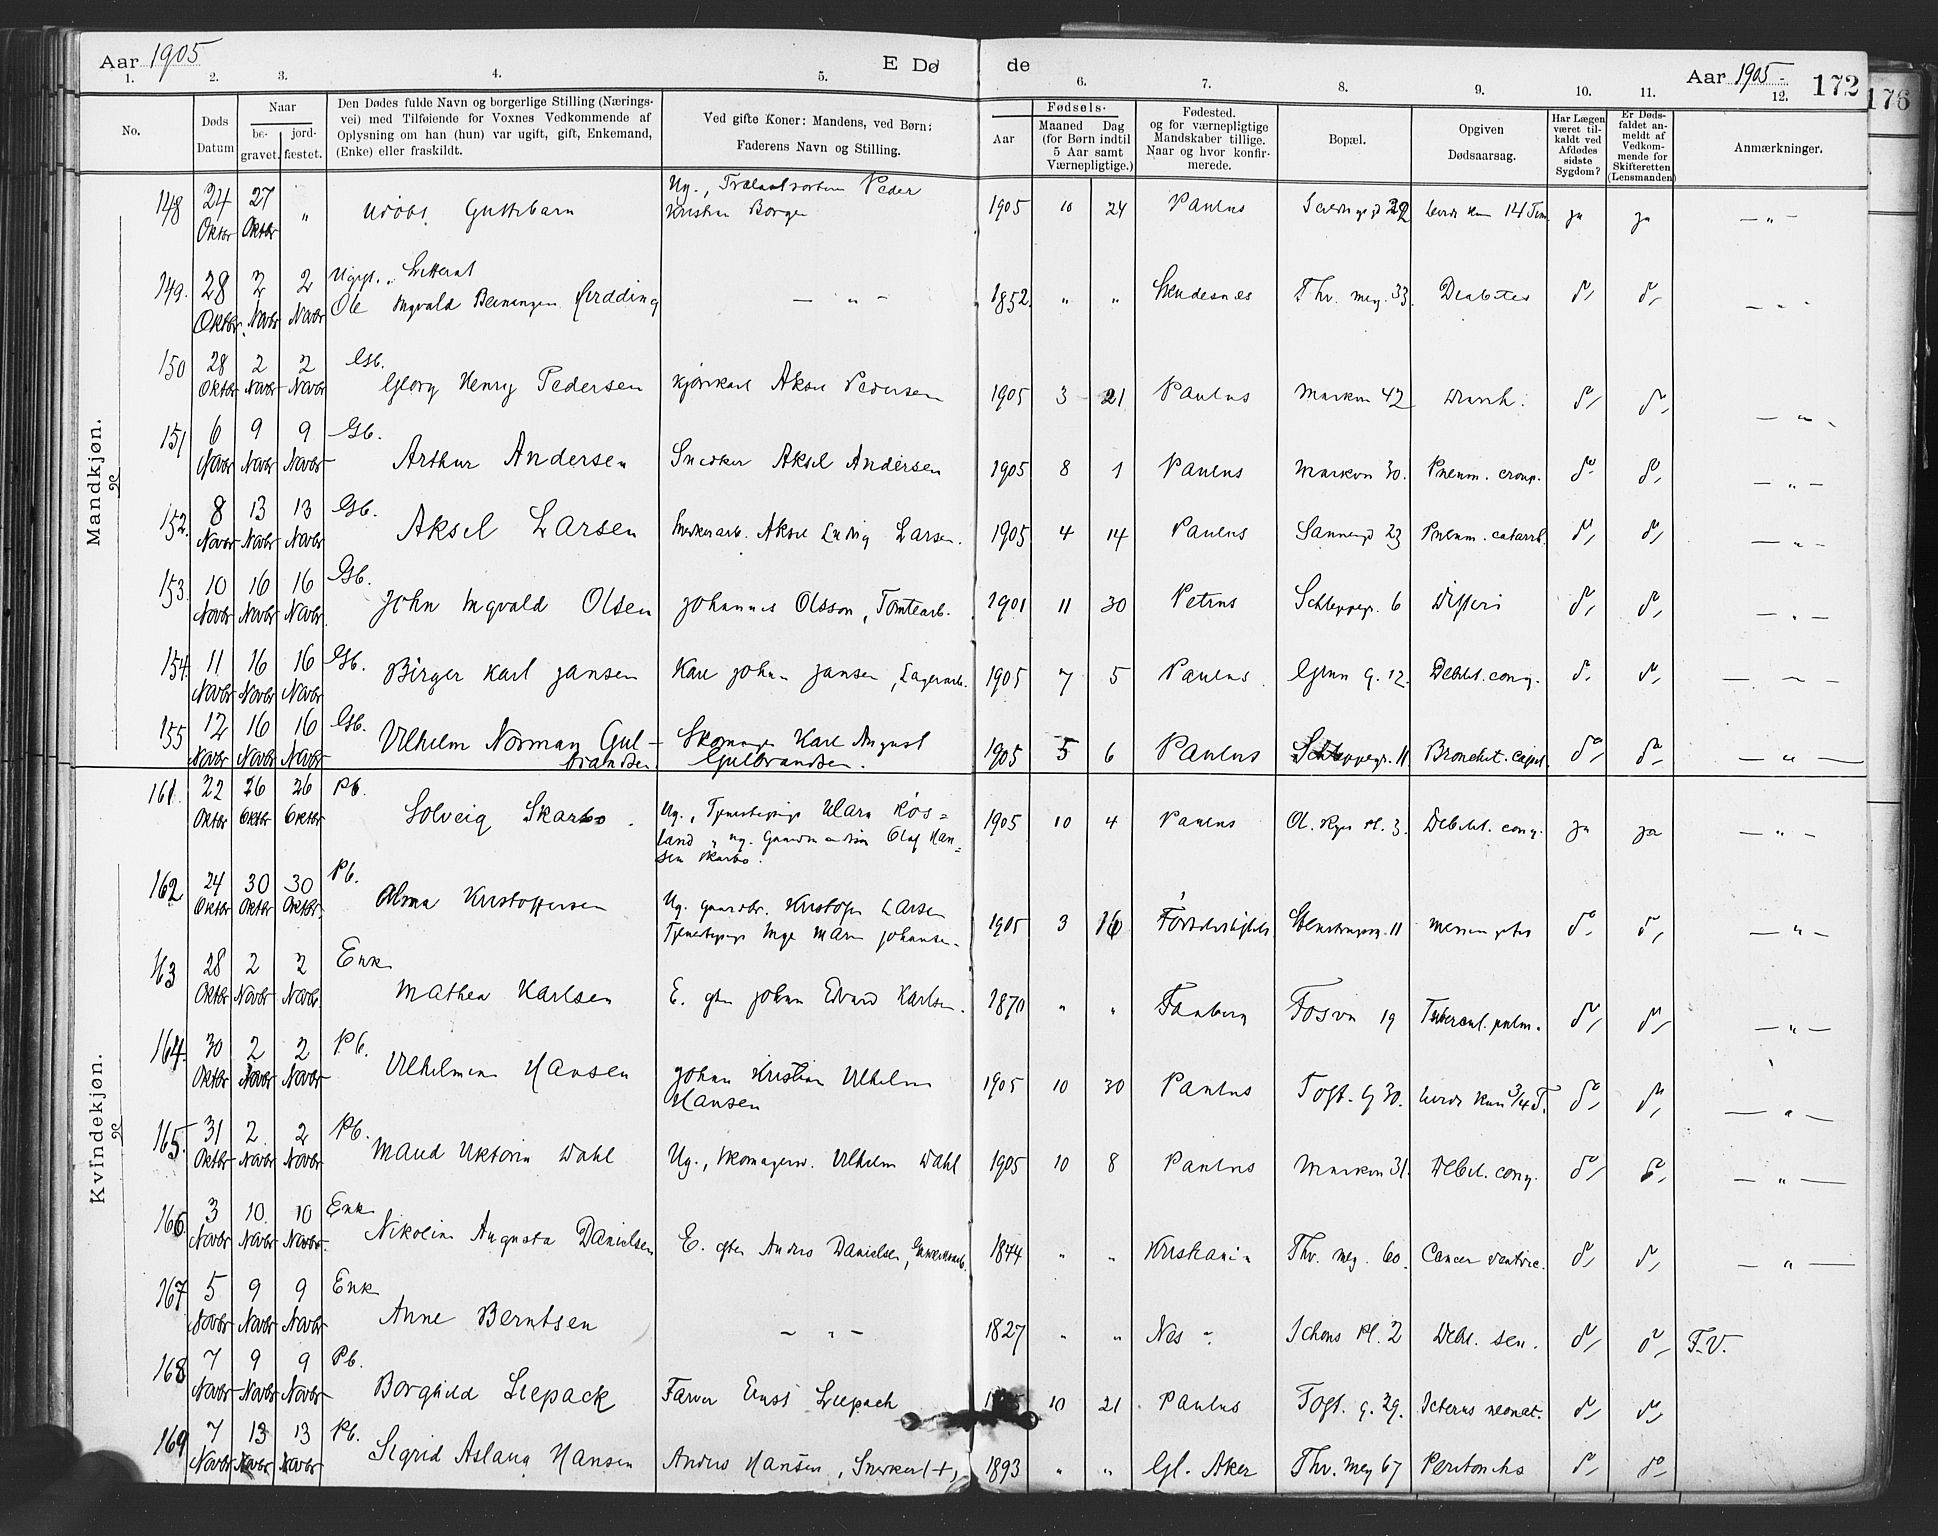 Aar 1905
E Dø
de
Aar 1905
172
176
1. 2. 3. 4. 5. 6. 7. 8. 9. 10. 11. 12.
No.
Døds
Datum
Naar
be-
gravet.
jord-
fæstet.
Den Dødes fulde Navn og borgerlige Stilling (Nærings-
vei) med Tilføiende for Voxnes Vedkommende af
Oplysning om han (hun) var ugift, gift, Enkemand,
(Enke) eller fraskildt.
Ved gifte Koner: Mandens, ved Børn:
Faderens Navn og Stilling.
Fødsels-
Aar
Maaned Dag
(for Børn indtil
5 Aar samt
Værnepligtige.)
Fødested.
og for værnepligtige
Mandskaber tillige.
Naar og hvor konfir-
merede.
Bopæl.
Opgiven
Dødsaarsag.
Har Lægen
været til-
kaldt ved
Afdødes
sidste
Sygdom?
Er Døds-
faldet an-
meldt af
Vedkom-
mende for
Skifteretten
(Lensmanden)
Anmærkninger.
Mandkjøn.
148 24 Oktbr 27 Oktbr „ Udøbt Guttebarn Ug., Peder
Kristian Borgen 1905 10 24 Paulus 22 14 Tim. ja ja — „ —
149. 28 Oktbr 2 Novbr 2 Novbr Ugift.
Ole Ingvald — „ — 1852. „ „ Skudesnes Thv. mey. 33. Diabetes do do — „ -
150 28 Oktbr 2 Novbr 2 Novbr Gb.
Georg Henry Pedersen Kjørekarl Aksel Pedersen 1905 3 21 Paulus Markvn 42 Diarrh. do do — „ -
151 6 Novbr 9 Novbr 9 Novbr Gb.
Arthur Andersen Snedker Aksel Andersen 1905 8 1 Paulus Markvn 30. Pneum. croup. do do — „ —
152. 8 Novbr 13 Novbr 13 Novbr Gb.
Aksel Larsen Aksel Ludvig Larsen. 1905 4 14 Paulus Sannerg 23 Pneum. catarrh. do do — „ —
153. 10 Novbr 16 Novbr 16 Novbr Gb.
John Ingvald Olsen Johannes Olsson, Tomtearb. 1901 11 30 Petrus Schleppegr. 6 Difteri do do — „ —
154. 11 Novbr 16 Novbr 16 Novbr Gb.
Birger Karl Jansen Karl Johan Jansen, Lagerarb. 1905 7 5 Paulus Grün g. 12. Debilit. cong. do do — „ —
155 12 Novbr 16 Novbr 16 Novbr Gb.
Vilhelm Norman Gul-
brandsen Skomager Karl August
Gulbrandsen. 1905 5 6 Paulus Schleppegr. 11 Bronchit. capil. do do — „ —
Kvindekjøn.
161. 22 Oktbr 26 Oktbr 26 Oktbr Pb.
Solveig Skarbo. Ug., Tjenestepige Klara Røs=
land, ug. Olaf Han=
sen Skarbo. 1905 10 4 Paulus Ol. Ryes Pl. 3. Debilit. cong. ja ja — „ —
162 24 Oktbr 30 Oktbr 30 Oktbr Pb.
Alma Kristoffersen Ug. Gaardbr. Kristofer Larsen
Tjenestepige Inga Marie Johansen. 1905 3 16 11 Meningitis do do — „ —
163 28 Oktbr 2 Novbr 2 Novbr Enke
Mathea Karlsen E. efter Johan Edvard Karlsen. 1870 „ „ Faaberg Fosvn 19 Tubercul. pulm. do do — „ —
164. 30 Oktbr 2 Novbr 2 Novbr Pb.
Vilhelmine Hansen Johan Kristian Vilhelm
Hansen 1905 10 30 Paulus Toft. g 30. levede kun 3/4 T. do do — „ —
165. 31 Oktbr 2 Novbr 2 Novbr Pb.
Maud Viktoria Dahl Ug., Skomagersv. Vilhelm Dahl 1905 10 8 Paulus Markvn 31. Debil. cong. do do — „ —
166 3 Novbr 10 Novbr 10 Novbr Enke
Nikoline Augusta Danielsen E. efter Anders Danielsen, 1844 „ „ Kristiania Thv. mey. 60. Cancer ventric. do do — „ —
167 5 Novbr 9 Novbr 9 Novbr Enke
Anne Berntsen — „ — 1827 „ „ Nes Schous Pl. 2 Debil. sen. do do F.V.
168 7 Novbr 9 Novbr 9 Novbr Pb.
Borghild Liepack Farver Ernst Liepack 10 21 Paulus Toft. g. 29. Icterus neonat. do do
169 7 Novbr 13 Novbr 13 Novbr Pb.
Sigrid Aslaug Hansen Anders Hansen, Snekker (+), 1893 „ „ Gl. Aker Thv. mey 67 Peritonitis do do